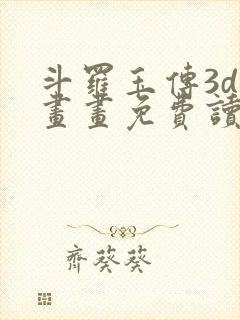 斗羅玉傳3d
畫畫免費讀
齊葵葵